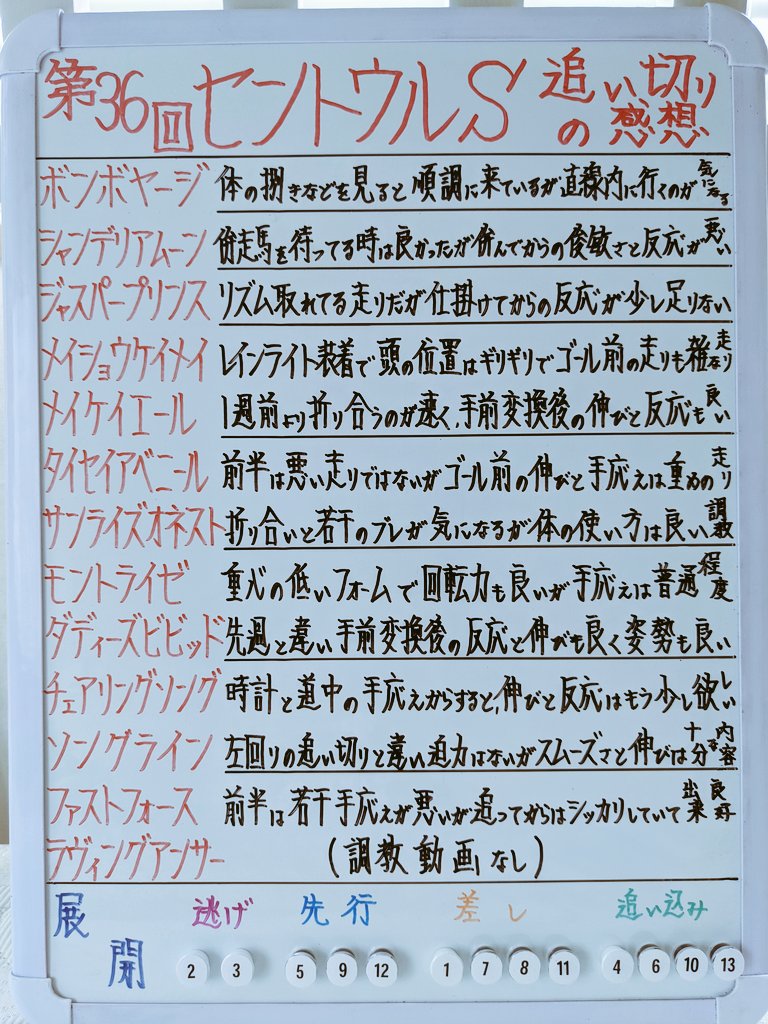 第36回セントウルS 追い切りの感想
ボンボヤージ 体の捌きなどを見ると順調に来ているが直線内に行くのが気になる
シャンデリアムーン 併走馬を待ってる時は良かったが併んでからの俊敏さと反応が悪い
ジャスパープリンス リズム取れてる走りだが仕掛けてからの反応が少し足りない
メイショウケイメイ レインライト装着で頭の位置はギリギリでゴール前の走りも雑な走り
メイケイエール 1週前より折り合うのが速く、手前変換後の伸びと反応も良い
タイセイアベニール 前半は悪い走りではないがゴール前の伸びと手応えは重めの走り
サンライズオネスト 折り合いと若干のブレが気になるが体の使い方は良い調教
モントライゼ 重心の低いフォームで回転力も良いが手応えは普通程度
ダディーズビビッド 先週と違い手前変換後の反応と伸びも良く姿勢も良い
チェアリングソング 時計と道中の手応えからすると、伸びと反応はもう少し欲しい
ソングライン 左回りの追い切りと違い迫力はないがスムーズさと伸びは十分な内容
ファストフォース 前半は若干手応えが悪いが追ってからはシッカリしていて良好出来
ラヴィングアンサー (調教動画なし)
展開 逃げ 先行 差し 追い込み
2 3 5 9 12 1 7 8 11 4 6 10 13